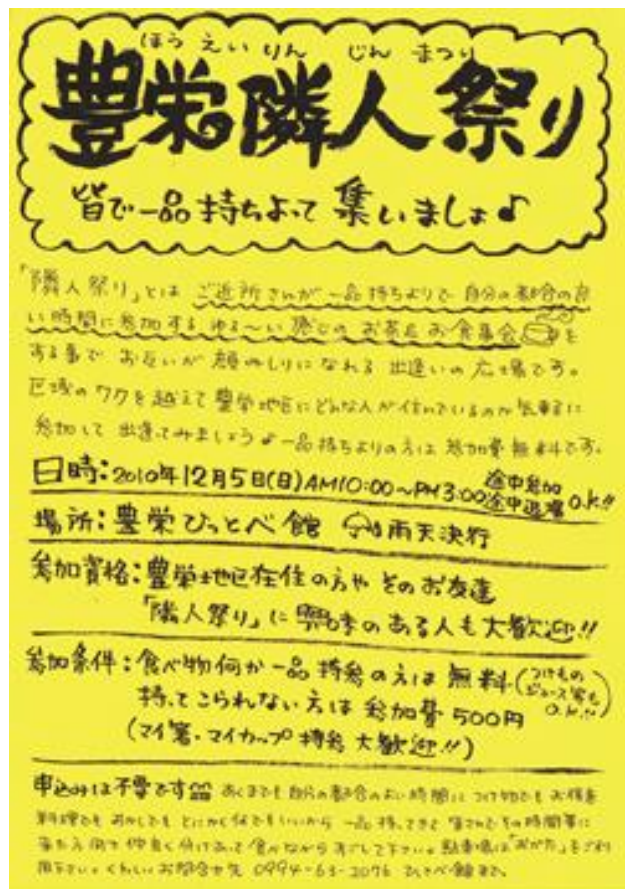 ほうえいりんじんまつり
豊栄隣人祭り
皆で一品持ちよって集いましょ♪
「隣人祭り」とは ご近所さんが一品持ちよりで 自分の都合の良
い時間に参加する ゆる〜い感じの お茶&お食事会を
する事で お互いが 顔みしりになれる 出逢いの広場です。
区域のワクを越えて 豊栄地区にどんな人が住んでいるのか気軽に
参加して 出逢てみましょう♪一品持ちよりの方は 参加費無料です。
日時:2010年12月5日(日)AM10:00〜PM3:00 途中参加
途中退場 O.K!!
場所:豊栄ひっとべ館 雨天決行
参加資格:豊栄地区在住の方や そのお友達
「隣人祭り」に興味のある人も大歓迎!!
参加条件:食べ物何か一品持参の方は 無料(つけもの
ジュース等も
O.K.!!)
持ってこられない方は 参加費 500円
(マイ箸・マイカップ持参 大歓迎!!)
申込みは不要です あくまでも 自分の都合のよい時間に つけ物でも お惣菜
料理でも おかしでも とにかく何でもいいから 一品持ってきて 時間帯に
仲良く分けあって 食べながら すごして下さい。駐車場は「おがた」をご利
用下さい。くわしいお問合せ先 0994-63-2076 ひっとべ館まで。